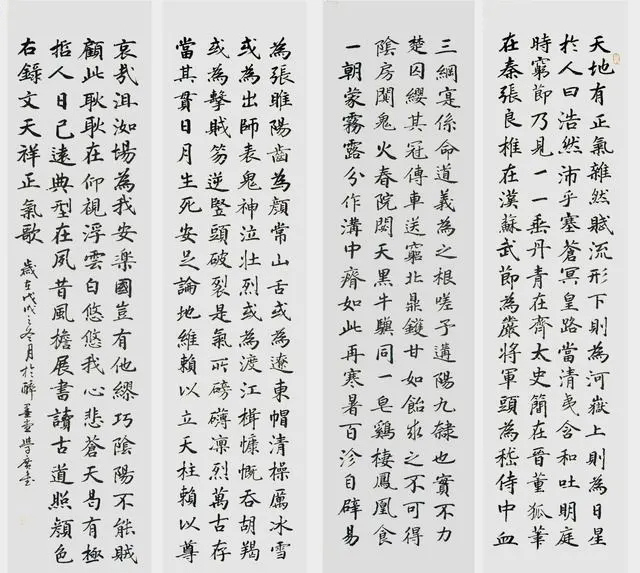 天地有正氣雜然賦流形下則為河嶽上則為日星
於人曰浩然沛乎塞蒼冥皇路當清夷含和吐明庭
時窮節乃見一一垂丹青在齊太史簡在晉董狐筆
在秦張良椎在漢蘇武節為嚴將軍頭為嵇侍中血
三綱寔係命道義為之根嗟予遘陽九隸也實不力
楚囚纓其冠傳車送窮北鼎鑊甘如飴求之不可得
陰房闃鬼火春院閟天黑牛驥同一皂鷄棲鳳凰食
一朝蒙霧露分作溝中瘠如此再寒暑百沴自辟易
為張睢陽齒為顏常山舌或為遼東帽清操厲冰雪
或為出師表鬼神泣壯烈或為渡江楫慷慨吞胡羯
或為擊賊笏逆豎頭破裂是氣所磅礡凜烈萬古存
當其貫日月生死安足論地維賴以立天柱賴以尊
哀哉沮洳場為我安樂國豈有他繆巧陰陽不能賊
顧此耿耿在仰視浮雲白悠悠我心悲蒼天曷有極
哲人日已遠典型在夙昔風檐展書讀古道照顏色
右錄文天祥正氣歌 歲在戊戌之冬月於醉墨堂